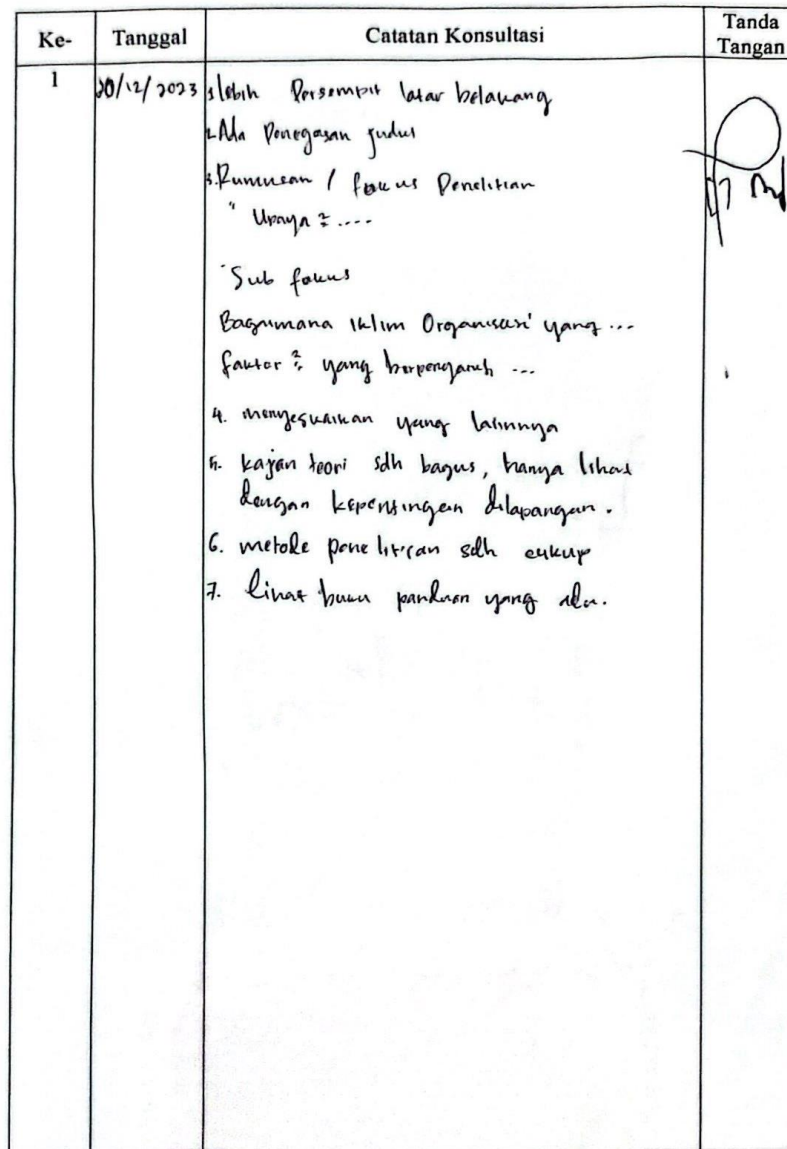 Ke- Tanggal Catatan Konsultasi Tanda Tangan
1 20/12/2023 1. lebih Persempit latar belakang
2. Ada Penegasan judul
3. Rumusan / fokus Penelitian
" Upaya 2 ....
Sub fokus
Bagaimana Iklim Organisasi yang ...
faktor 2 yang berpengaruh ...
4. menyesuaikan yang lainnya
5. kajian teori sdh bagus, hanya lihat
dengan kepentingan dilapangan.
6. metode penelitian sdh cukup
7. lihat buku panduan yang ada.